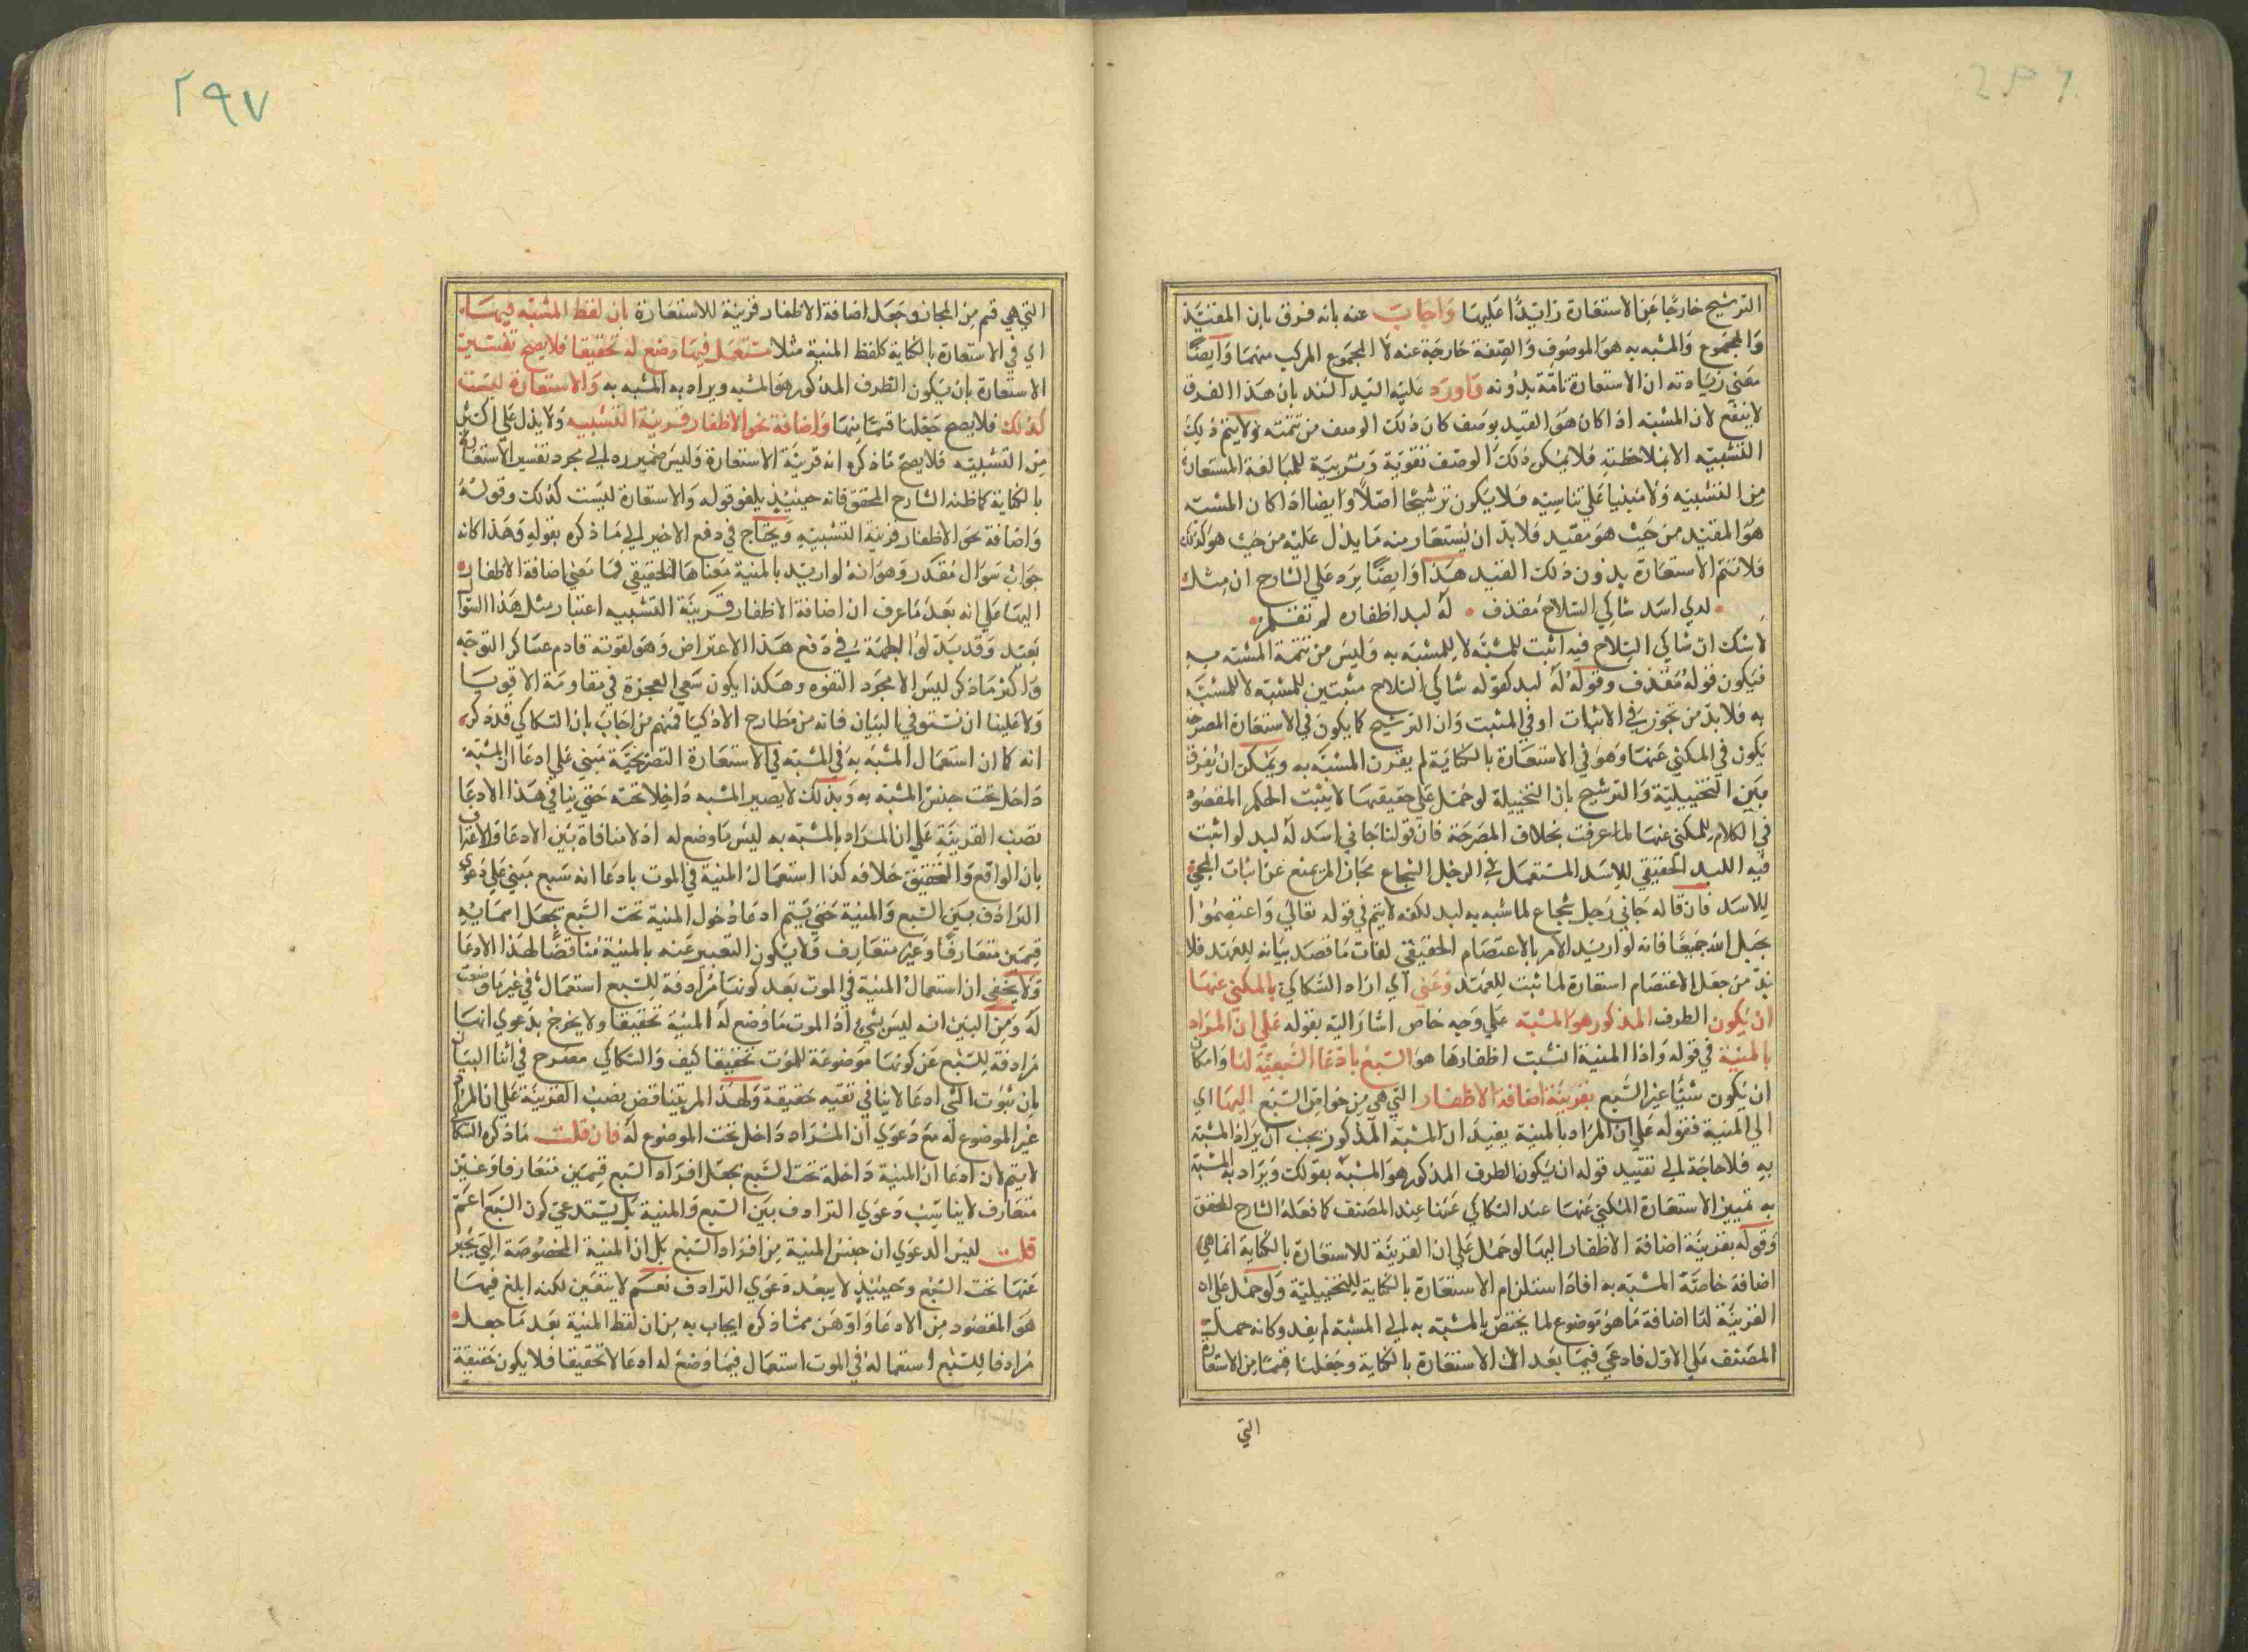 الترشيح خارجا عن الاستعارة زائدًا عليها وَاجابَ عنه بانه فرق بان المقيد
وَالمجموع وَالمشبه به هو الموصوف وَالصفة خارجة عنه لا المجموع المركب منهما وَايضًا
معني زيادته ان الاستعارة تامة بدونه وَاورَد عليه السيد السند بان هذا الفرق
لا ينفع لان المشبه اذا كان هو القيد بوصف كان ذلك الوصف من تتمته ولا يتم ذلك
التشبيه الا بملاحظته فلا يكن ذلك الوصف تقوية وَتربية للمبالغة المستعارة
من التشبيه وَلا مبنيا علي تناسيه فلا يكون ترشيحًا اصلا وَايضا اذا كان المشبه
هو المقيد من حيث هو مقيد فلا بد ان يستعار منه ما يدل عليه من حيث هو كذلك
فلا تتم الاستعارة بدون ذلك القيد هذا وَايضًا يرد علي الشارح ان مثل
لدي اسد شاكي السلاح مقذف • لهُ لبد اظفاره لم تقلم
لا شك ان شاكي السلاح فيه اثبت للمشبه لا للمشبه به وَليس من تتمة المشبه به
فيكون قوله مقذف وقوله لهُ لبد كقوله شاكي السلاح مثبتين للمشبه لا للمشبه
به فلا بد من تجوز في الاثبات او في المثبت وَان الترشيح كما يكون في الاستعارة المصرحة
يكون في المكني عنها وَهو في الاستعارة بالكناية لم يقرن المشبه به ويمكن ان يفرق
بين التخييلية وَالترشيح بان التخييلة لو حمل علي حقيقتها لا يثبت الحكم المقصود
في الكلام للمكني عنها لما عرفت بخلاف المصرحة فان قولنا جاني اسد لهُ لبد لو اثبت
فيه اللبد الحقيقي للاسد المستعمل في الرجل الشجاع مجازا لم يمنع عن اثبات المجئ
للاسد فان قاله جاني رجل شجاع لما شبه به لبد لكنه لا يتم في قوله تعالي وَاعتصموا
بحبل الله جميعًا فانه لو اريد الامر بالاعتصام الحقيقي لفات ما قصد بيانه للعهد فلا
بد من جعل الاعتصام استعارة لما ثبت للعهد وَعَني اي اراد السكاكي بالمكني عنها
ان يكون الطرف المذكور هو المشبه علي وجه خاص اشار اليه بقوله علي ان المراد
بالمنية في قوله وَاذا المنية انشبت اظفارها هو السبع بادّعا السبعية لها وَامكان
ان يكون شيئًا غير السبع بقرينة اضافة الاظفار التي هي من خواص السبع اليها اي
الي المنية فقوله علي ان المراد بالمنية يفيد ان المشبه المذكور يجب ان يراد المشبه
به فلا حاجة الي تقييد قوله ان يكون الطرف المذكور هو المشبه بقولك وَيراد به المشبه
به تمييز الاستعارة المكني عنها عند السكاكي عنها عند المصنف كما فعله الشارح المحقق
وَقوله بقرينة اضافة الاظفار اليها لو حمل علي ان القرينة للاستعارة بالكناية انما هي
اضافة خاصة المشبه به افاد استلزام الاستعارة بالكناية للتخييلية وَلو حمل علي ان
القرينة لها اضافة ما هو موضوع لما يختص بالمشبه به الي المشبه لم يفد وكانه حمل
المصنف علي الاول فادعي فيما بعد ان الاستعارة بالكناية وجعلها قسمًا من الاستعارة
التي
٢٩٧
التي هي قسم من المجاز وجعل اضافة الاظفار قرينة للاستعارة بان لفظ المشبه فيها
اي في الاستعارة بالكناية كلفظ المنية مثلا مستعمل فيما وضع له تحقيقا فلا يصح تفسير
الاستعارة بان يكون الطرف المذكور هو المشبه ويراد به المشبه به وَالاستعارة ليست
كذلك فلا يصح جعلها قسمًا منها وَاضافة نحو الاظفار قرينة التشبيه وَلا يدل علي اكثر
من التشبيه فلا يصح ما ذكره انه قرينة الاستعارة وَليس ضميره الي مجرد تفسير الاستعارة
بالكناية كما ظنه الشارح المحقق فانه حينئذ يلغو قوله وَالاستعارة ليست كذلك وقوله
وَاضافة نحو الاظفار قرينة التشبيه وَيحتاج في دفع الاخير الي ما ذكره بقوله وَهذا كانه
جوابُ سؤال مقدر وَهو انهُ لو اريد بالمنية معناها الحقيقي فما معني اضافة الاظفار
اليها علي انه بعد ما عرف ان اضافة الاظفار قرينة التشبيه اعتبار مثل هذا السوال
بعيد وَقد بذلوا الهمة في دفع هذا الاعتراض وَهو لقوته قادم عساكر التوجه
وَاكثر ما ذكر ليس الا مجرد التفوه وهكذا يكون سعي العجزة في مقاومة الاقويا
وَلا علينا ان نستوفي البيان فانه من مطارح الاذكيا فمنهم من اجابَ بان السكاكي قد ذكر
انه كما ان استعمال المشبه به في المشبه في الاستعارة التصريحية مبني علي ادعا ان المشبه
داخل تحت جنس المشبه به وَبذلك لا يصير المشبه داخلا تحته حتي ينافي هذا الادعا
نصب القرينة علي ان المراد بالمشبه به ليس ما وضع له اذ لا منافاة بين الادعا وَالاعتراف
بان الواقع وَالتحقيق خلافه كذا استعمال المنية في الموت بادعا انه سبع مبني علي دعوي
الترادف بين السبع وَالمنية حتي يتم ادعا دخول المنية تحت السبع بجعل اسمائه
قسمين متعارفًا وَغير متعارف فلا يكون التعبير عنه بالمنية مناقضا لهذا الادعا
وَلا يخفي ان استعمال المنية في الموت بعد كونها مرادفة للسبع استعمال في غير ما وضعت
لهُ وَمن البين انه ليس بشئ اذ الموت ما وضع لهُ المنية تحقيقا ولا يخرج بدعوي انها
مرادفة للسبع عن كونها موضوعة للموت تحقيقا كيف وَالسكاكي مصرح في اثنا البيان
بان ثبوت الشي ادعا لا ينافي نفيه حقيقة وَلهذا لم يتناقض نصب القرينة علي ان المراد
غير الموضوع له مع دعوي ان المراد داخل تحت الموضوع لهُ فان قلت ما ذكره السكاكي
لا يتم لان ادعا ان المنية داخلة تحت السبع بجعل افراد السبع قسمين متعارفا وَغير
متعارف لا يناسب دعوي الترادف بين السبع وَالمنية بل يستدعي كون السبع اعم
قلت ليس الدعوي ان جنس المنية من افراد السبع بل ان المنية المخصوصة التي يخبر
عنها تحت السبع وحينئذ لا يبعد دعوي الترادف نعم لا يتعين لكنه ابلغ فيما
هو المقصود من الادعا وَاوهن مما ذكره ايجاب به من ان لفظ المنية بعد ما جعل
مرادفا للسبع استعماله في الموت استعمال فيما وضع له ادعا لا تحقيقا فلا يكون حقيقة